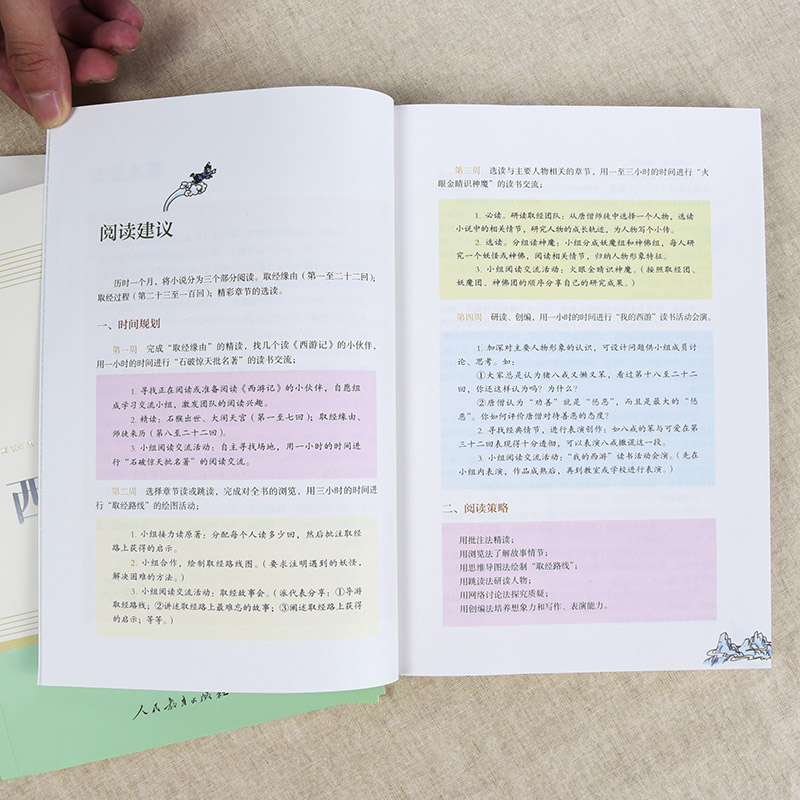 阅读建议
历时一个月，将小说分为三个部分阅读。取经缘由（第一至二十二回）；
取经过程（第二十三至一百回）；精彩章节的选读。
一、时间规划
第一周 完成“取经缘由”的精读，找几个读《西游记》的小伙伴，
用一小时的时间进行“石破惊天批名著”的读书交流；
1. 寻找正在阅读或准备阅读《西游记》的小伙伴，自愿组
成学习交流小组，激发团队的阅读兴趣。
2. 精读：石猴出世、大闹天宫（第一至七回）；取经缘由、
师徒来历（第八至二十二回）。
3. 小组阅读交流活动：自主寻找场地，用一小时的时间进
行“石破惊天批名著”的阅读交流。
第二周 选择章节读或跳读，完成对全书的浏览，用三小时的时间进
行“取经路线”的绘图活动；
1. 小组接力读原著：分配每个人读多少回，然后批注取经
路上获得的启示。
2. 小组合作，绘制取经路线图。（要求注明遇到的妖怪，
解决困难的方法。）
3. 小组阅读交流活动：取经故事会。（派代表分享：①导游
取经路线；②讲述取经路上最难忘的故事；③阐述取经路上获得
的启示；等等。）
第三周 选读与主要人物相关的章节，用一至三小时的时间进行“火
眼金睛识神魔”的读书交流；
1. 必读。研读取经团队：从唐僧师徒中选择一个人物，选读
小说中的相关情节，研究人物的成长轨迹，为人物写个小传。
2. 选读。分组读神魔：小组分成妖魔组和神佛组，每人研
究一个妖怪或神佛，阅读相关情节，归纳人物形象特征。
3. 小组阅读交流活动：火眼金睛识神魔。（按照取经团、
妖魔团、神佛团的顺序分享自己的研究成果。）
第四周 研读、创编，用一小时的时间进行“我的西游”读书活动会演。
1. 加深对主要人物形象的认识，可设计问题供小组成员讨
论、思考。如：
①大家总是认为猪八戒又懒又笨，看过第十八至二十二
回，你还这样认为吗？为什么？
②唐僧认为“劝善”就是“惩恶”，而且是最大的“惩
恶”。你如何评价唐僧对待善恶的态度？
2. 寻找经典情节，进行表演创作：如八戒的笨与可爱在第
三十二回表现得十分透彻，可以表演八戒撒谎这一段。
3. 小组阅读交流活动：“我的西游”读书活动会演。（先在
小组内表演，作品成熟后，再到教室或学校进行表演。）
二、阅读策略
用批注法精读；
用浏览法了解故事情节；
用思维导图法绘制“取经路线”；
用跳读法研读人物；
用网络讨论法探究质疑；
用创编法培养想象力和写作、表演能力。
西
人民教育出版社